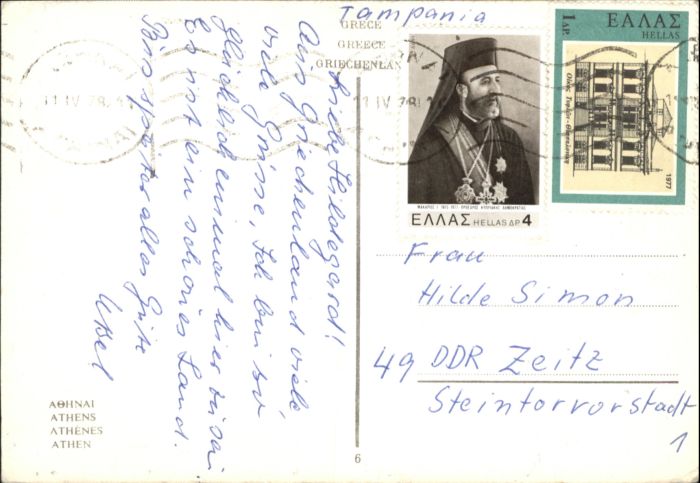 Tampania
GRECE
GREECE
GRIECHENLAN
11 IV 78
11 IV 78
1 ΔΡ.
ΕΛΛΑΣ
HELLAS
1977
ΕΛΛΑΣ HELLAS ΔΡ 4
Liebe Hildegard!
Aus Griechenland viele
viele Grüsse, Ich bin so
glücklich einmal hier zu sein
Es ist ein schönes Land.
Bis später alles Gute
Frau
Hilde Simon
49 DDR Zeitz
Steintorvorstadt
1
ΑΘΗΝΑΙ
ATHENS
ATHÈNES
ATHEN
6